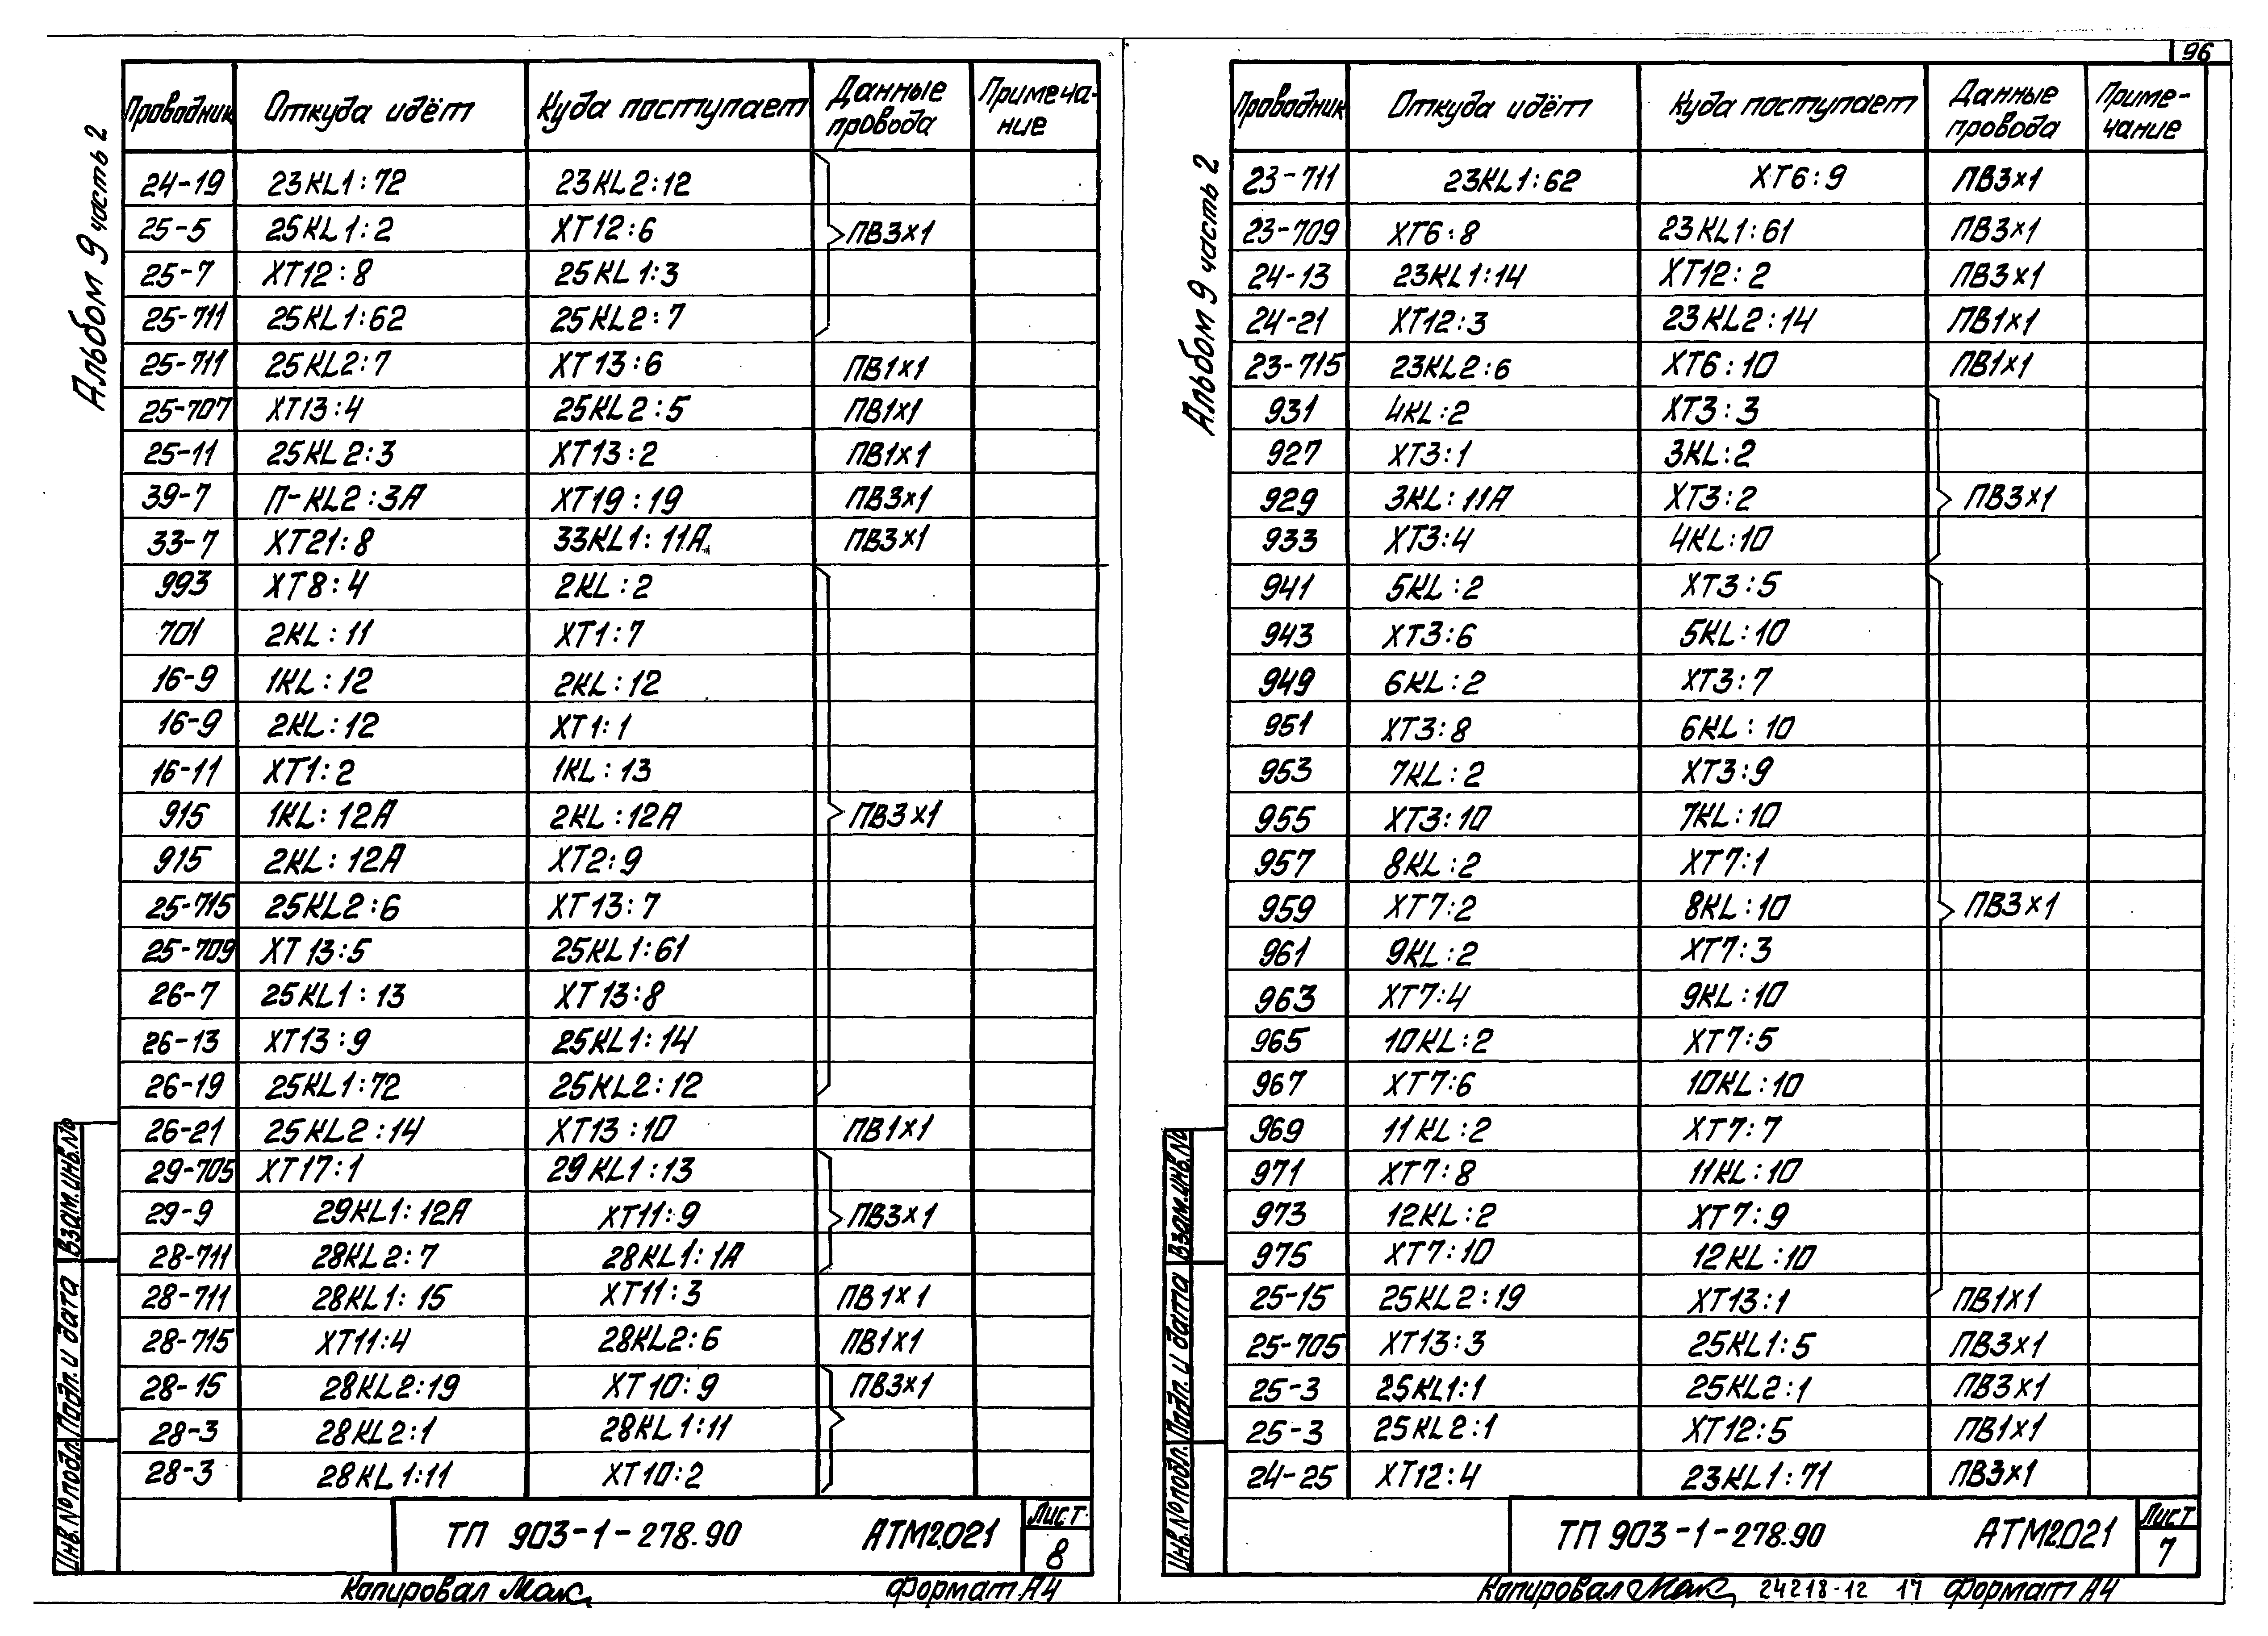 96
Альбом 9 часть 2
Проводник Откуда идёт Куда поступает Данные провода Примечание
24-19 23KL1:72 23KL2:12
25-5 25KL1:2 XT12:6 ПВ3×1
25-7 XT12:8 25KL1:3
25-711 25KL1:62 25KL2:7
25-711 25KL2:7 XT13:6 ПВ1×1
25-707 XT13:4 25KL2:5 ПВ1×1
25-11 25KL2:3 XT13:2 ПВ1×1
39-7 П-KL2:3А XT19:19 ПВ3×1
33-7 XT21:8 33KL1:11А ПВ3×1
993 XT8:4 2KL:2
701 2KL:11 XT1:7
16-9 1KL:12 2KL:12
16-9 2KL:12 XT1:1
16-11 XT1:2 1KL:13
915 1KL:12А 2KL:12А ПВ3×1
915 2KL:12А XT2:9
25-715 25KL2:6 XT13:7
25-709 XT13:5 25KL1:61
26-7 25KL1:13 XT13:8
26-13 XT13:9 25KL1:14
26-19 25KL1:72 25KL2:12
26-21 25KL2:14 XT13:10 ПВ1×1
29-705 XT17:1 29KL1:13
29-9 29KL1:12А XT11:9 ПВ3×1
28-711 28KL2:7 28KL1:1А
28-711 28KL1:15 XT11:3 ПВ1×1
28-715 XT11:4 28KL2:6 ПВ1×1
28-15 28KL2:19 XT10:9 ПВ3×1
28-3 28KL2:1 28KL1:11
28-3 28KL1:11 XT10:2
Инв.№ подл. Подп. и дата Взам.инв.№
ТП 903-1-278.90 АТМ2.021 Лист 8
Копировал Мак Формат А4
Альбом 9 часть 2
Проводник Откуда идёт Куда поступает Данные провода Примечание
23-711 23KL1:62 XT6:9 ПВ3×1
23-709 XT6:8 23KL1:61 ПВ3×1
24-13 23KL1:14 XT12:2 ПВ3×1
24-21 XT12:3 23KL2:14 ПВ1×1
23-715 23KL2:6 XT6:10 ПВ1×1
931 4KL:2 XT3:3
927 XT3:1 3KL:2
929 3KL:11А XT3:2 ПВ3×1
933 XT3:4 4KL:10
941 5KL:2 XT3:5
943 XT3:6 5KL:10
949 6KL:2 XT3:7
951 XT3:8 6KL:10
953 7KL:2 XT3:9
955 XT3:10 7KL:10
957 8KL:2 XT7:1
959 XT7:2 8KL:10 ПВ3×1
961 9KL:2 XT7:3
963 XT7:4 9KL:10
965 10KL:2 XT7:5
967 XT7:6 10KL:10
969 11KL:2 XT7:7
971 XT7:8 11KL:10
973 12KL:2 XT7:9
975 XT7:10 12KL:10
25-15 25KL2:19 XT13:1 ПВ1×1
25-705 XT13:3 25KL1:5 ПВ3×1
25-3 25KL1:1 25KL2:1 ПВ3×1
25-3 25KL2:1 XT12:5 ПВ1×1
24-25 XT12:4 23KL1:71 ПВ3×1
Инв.№ подл. Подп. и дата Взам.инв.№
ТП 903-1-278.90 АТМ2.021 Лист 7
Копировал Мак 24218-12 17 Формат А4